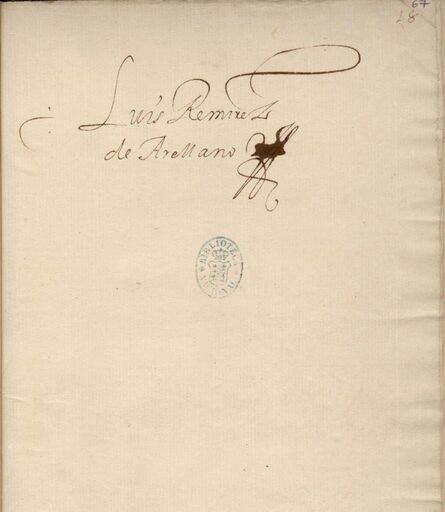 67
28
Luis Remirez
de Arellano
BIBLIOTECA